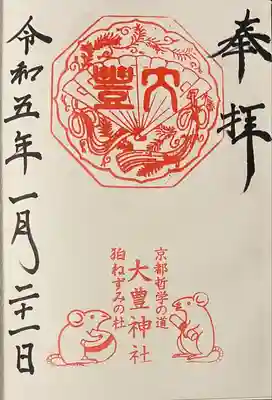 奉拝
大豊
京都哲学の道
大豊神社
狛ねずみの杜
令和五年一月二十一日